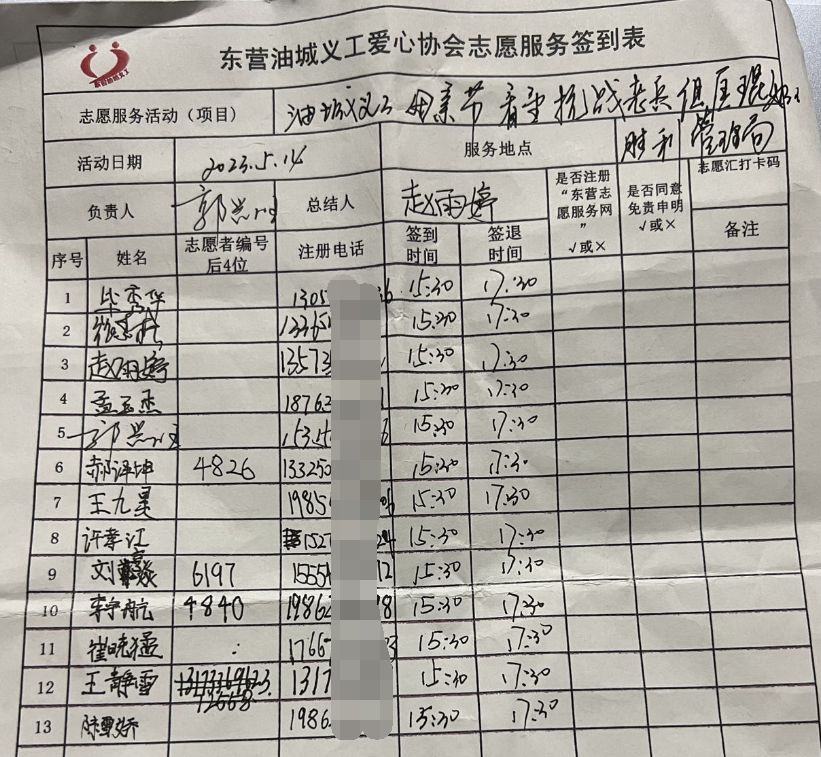 东营油城义工爱心协会志愿服务签到表
志愿服务活动（项目） 油城义工 母亲节 看望抗战老兵
活动日期 2023.5.14 服务地点 胜利 管理局
负责人 总结人 赵雨婷 是否注册“东营志愿服务网” √或× 是否同意免责申明 √或× 志愿汇打卡码
序号 姓名 志愿者编号后4位 注册电话 签到时间 签退时间 备注
1 毕秀华 1305 6 15:30 17:30
2 1336 15:30 17:30
3 赵雨婷 13573 15:30 17:30
4 孟玉杰 1876 15:30 17:30
5 15:30 17:30
6 郝泽坤 4826 133250 15:30 17:30
7 王九昊 1985 15:30 17:30
8 许孝江 1527 15:30 17:30
9 刘 6197 1555 12 15:30 17:30
10 李宇航 4840 1986 8 15:30 17:30
11 崔晓猛 1766 3 15:30 17:30
12 王静雪 12668 1317 15:30 17:30
13 1986 15:30 17:30